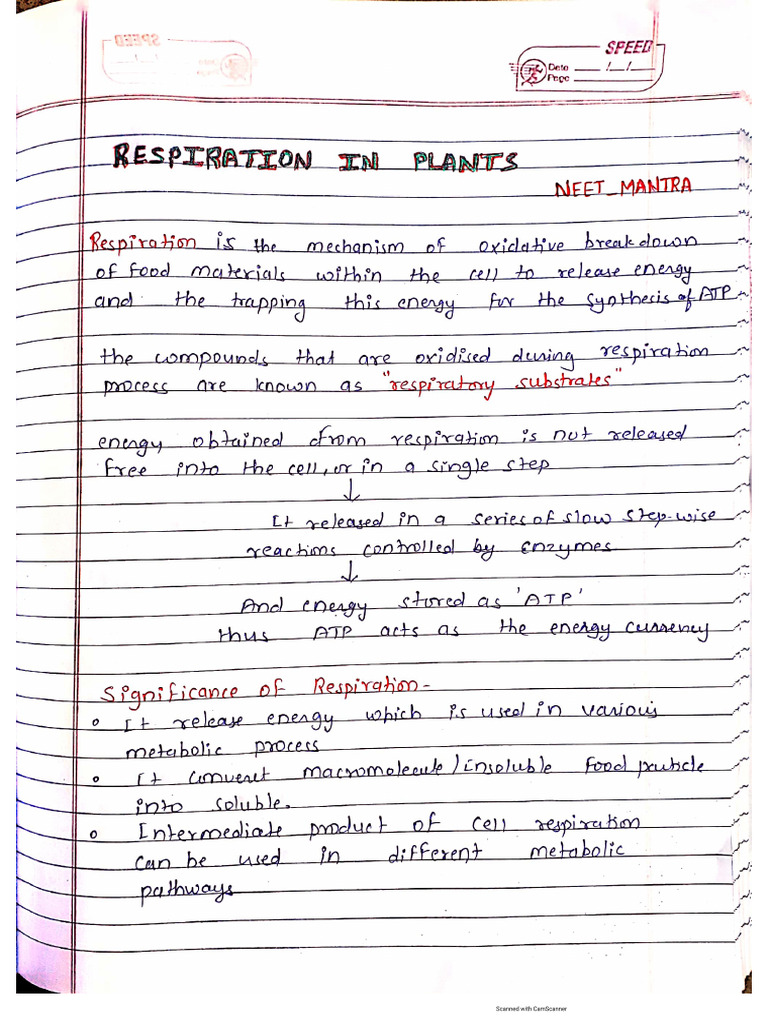 SPEED
Date __/__/__
Page
RESPIRATION IN PLANTS
NEET_MANTRA
Respiration is the mechanism of oxidative breakdown
of food materials within the cell to release energy
and the trapping this energy for the synthesis of ATP
the compounds that are oxidised during respiration
process are known as "respiratory substrates"
energy obtained from respiration is not released
free into the cell, or in a single step
↓
It released in a series of slow step-wise
reactions controlled by enzymes
↓
And energy stored as 'ATP'
thus ATP acts as the energy currency
Significance of Respiration-
• It release energy which is used in various
metabolic process
• It convert macromolecule/insoluble food particle
into soluble.
• Intermediate product of cell respiration
can be used in different metabolic
pathways
Scanned with CamScanner